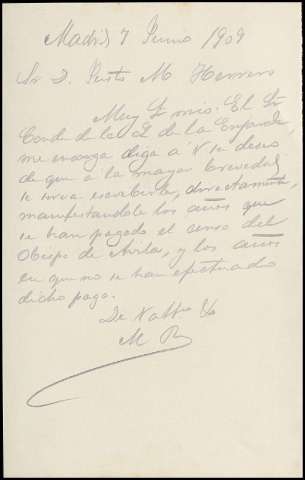 Madrid 7 Junio 1909
Sr D. Justo M Herrero
Muy Sr mio. El Sr
Conde de la P. de la Enjarada
me encarga diga á V. se deseo
de que á la mayor brevedad
se sirva escribirle, directamente
manifestandole los años que
se han pagado el censo del
Obispo de Avila, y los años
en que no se han efectuado
dicho pago.
De V att
M